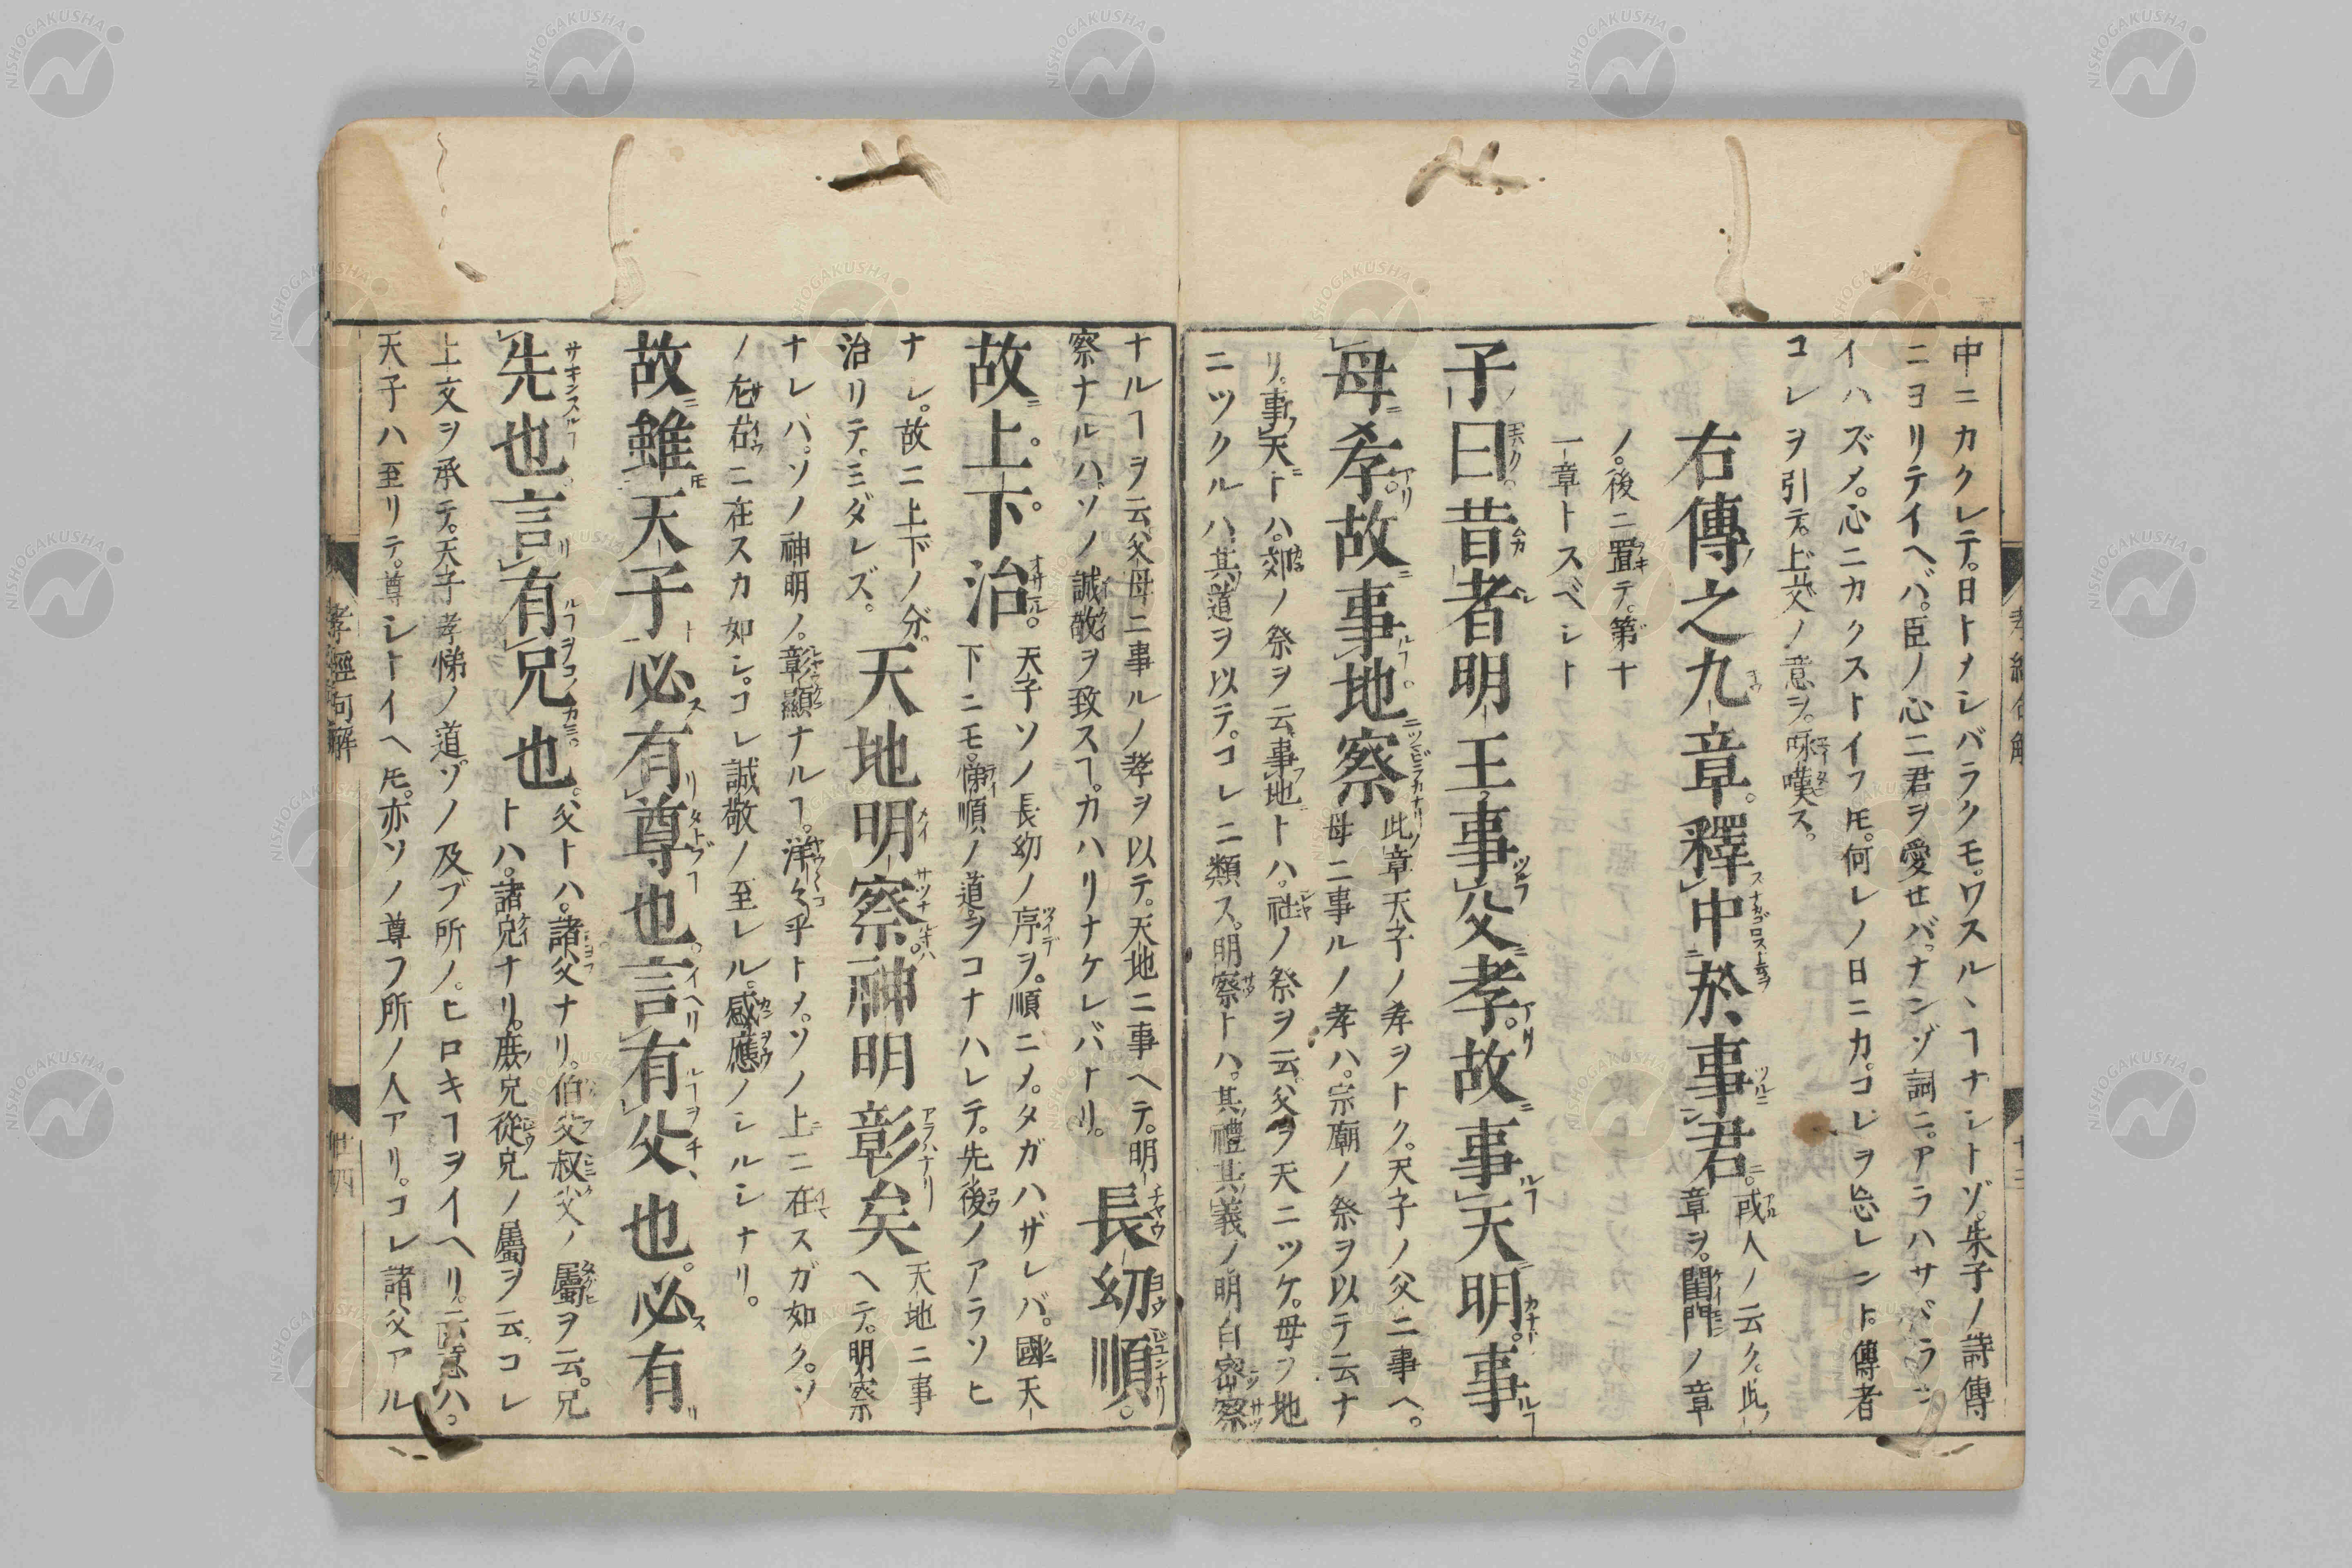 中ニカクレテ。日トメシバラクモ。ワスルヽヿナシトゾ。朱子ノ詩傳
ニヨリテイヘバ。臣ノ心ニ君ヲ愛セバ。ナンゾ詞ニ。アラハサバラン
イハズメ。心ニカクストイフ𪜈。何レノ日ニカ。コレヲ忘レント。傳者
コレヲ引テ。上文ノ意ヲ。咏嘆ス。
右傳之九章。釋中於事君。
或人ノ云ク。此
章ヲ。閨門ノ章
ノ。後ニ置テ。第十
一章トスベシト
子曰昔者明王事父孝。故事天明。事
母孝。故事地察
此章天子ノ孝ヲトク。天子ノ父ニ事ヘ。
母ニ事ルノ孝ハ。宗廟ノ祭ヲ以テ云ナ
リ。事天トハ。郊ノ祭ヲ云。事地トハ。社ノ祭ヲ云。父ヲ天ニツケ。母ヲ地
ニツクルハ。其道ヲ以テ。コレニ類ス。明察トハ。其禮其義ノ。明白密察
ナルヿヲ云。父母ニ事ルノ孝ヲ以テ。天地ニ事ヘテ。明
察ナルハ。ソノ誠敬ヲ致スヿ。カハリナケレバナリ。
長幼順。
故上下治。
天子ソノ長幼ノ序ヲ。順ニメ。タガハザレバ。國天
下ニモ。悌順ノ道ヲコナハレテ。先後ノアラソヒ
ナレ。故ニ上下ノ分。
治リテ。ミダレズ。
天地明察。神明彰矣
天地ニ事
ヘテ。明察
ナレバ。ソノ神明ノ。彰顯ナルヿ。洋々乎トメ。ソノ上ニ在スガ如ク。ソ
ノ左右ニ在スカ如シ。コレ誠敬ノ至レル。感應ノシルシナリ。
故雖天子必有尊也。言有父也。必有
先也言有兄也。
父トハ。諸父ナリ。伯父叔父ノ屬ヲ云。兄
トハ。諸兄ナリ。庶兄從兄ノ屬ヲ云。コレ
上文ヲ承テ。天子孝悌ノ道ヅノ及ブ所ノ。ヒロキヿヲイヘリ。云意ハ。
天子ハ至リテ。尊シトイヘ𪜈。亦ソノ尊フ所ノ人アリ。コレ諸父アル
孝經句解
卅四
NISHOGAKUSHA